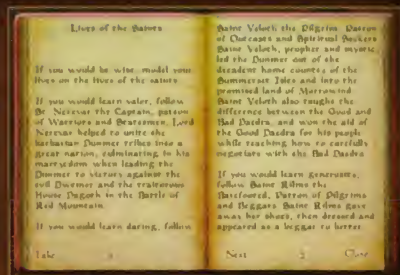 Lives of the Saints
If you would be wise, model your
lives on the lives of the saints.
If you would learn valor, follow
St. Nerevar the Captain, patron
of Warriors and Statesmen. Lord
Nerevar helped to unite the
barbarian Dunmer tribes into a
great nation, culminating in his
martyrdom when leading the
Dunmer to victory against the
evil Dwemer and the traitorous
House Dagoth in the Battle of
Red Mountain.
If you would learn daring, follow
Take
Saint Veloth, the Pilgrim, Patron
of Outcasts and Spiritual Seekers.
Saint Veloth, prophet and mystic,
led the Dunmer out of the
decadent home country of the
Summerset Isles and into the
promised land of Morrowind.
Saint Veloth also taught the
difference between the Good and
Bad Daedra, and won the aid of
the Good Daedra for his people
while teaching how to carefully
negotiate with the Bad Daedra.
If you would learn generosity,
follow Saint Rilms the
Barefooted, Patron of Pilgrims
and Beggars. Saint Rilms gave
away her shoes, then dressed and
appeared as a beggar to better
Next
2
Close